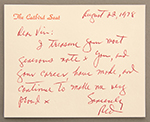 The Catbird Seat
August 23, 1978
Dear Vin:
I treasure your most
generous note & you, and
your career have made, and
continue to make me very
proud &
Sincerely
Red